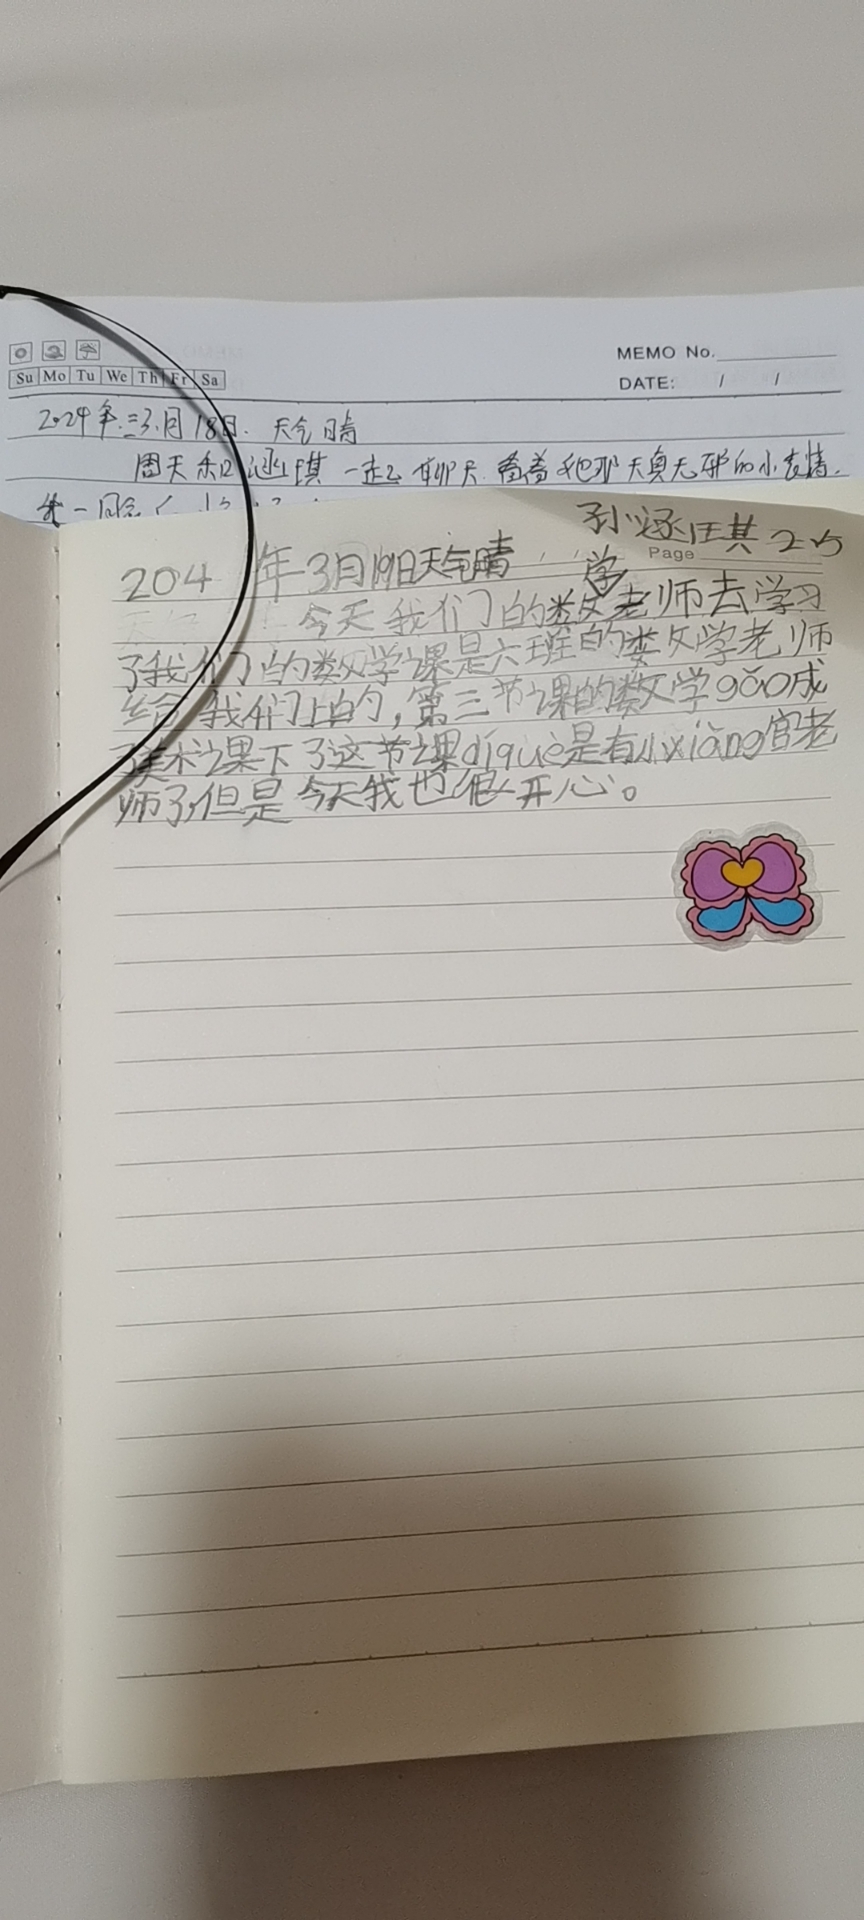 MEMO No.
Su Mo Tu We Th Fr Sa
DATE: / /
2024年三3.月18日. 天气晴
周天和涵琪一起聊天 看着他那天真无邪的小表情.
孙涵琪 2.5
Page
204 年3月19日天气晴
学
今天我们的数老师去学习
了我们的数学课是六班的数学老师
给我们上的,第三节课的数学gǎo成
了美术课下了这节课díquè是有小xiàng官老
师了,但是今天我也很开心。